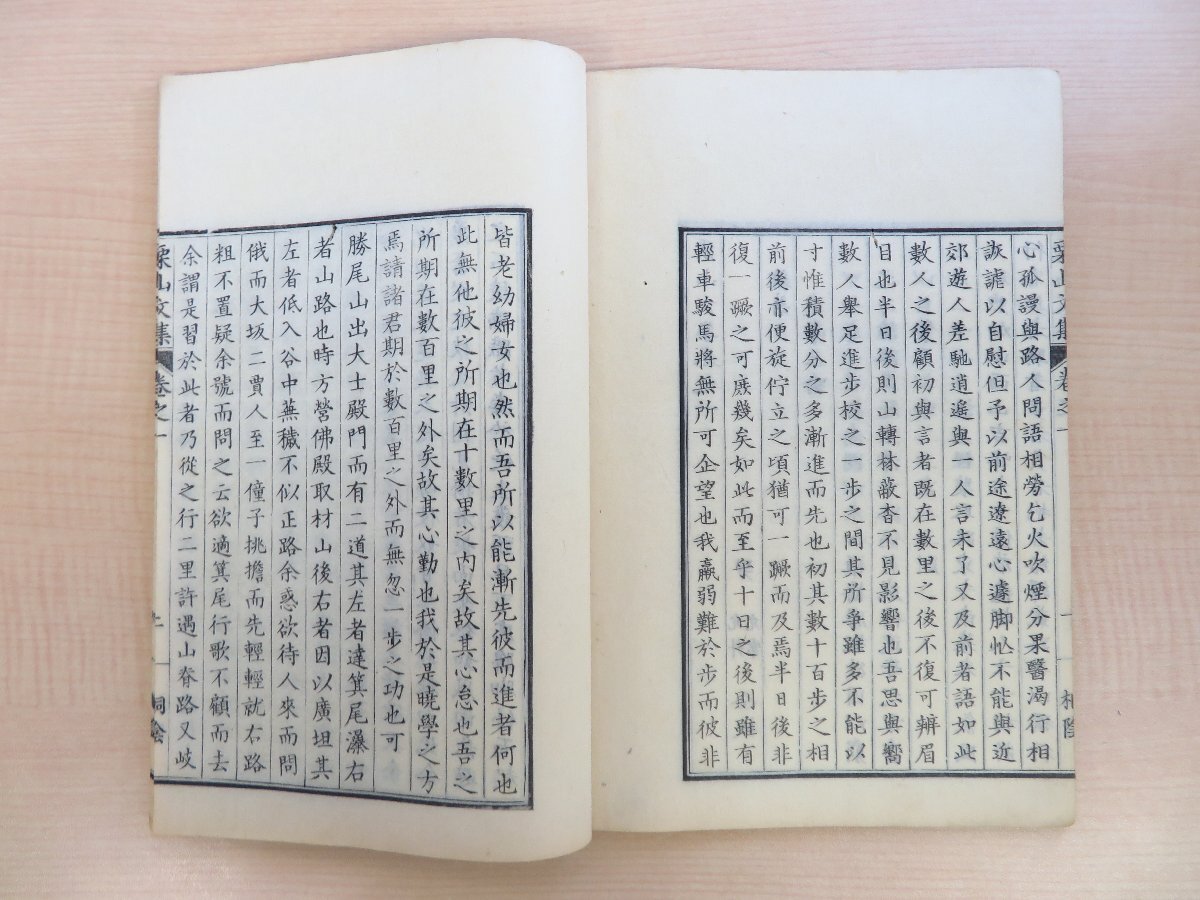 栗山文集
卷之一
心孤謾與路人問語相勞乞火吹煙分果醫渴行相
詼謔以自慰但予以前途遼遠心遽脚忙不能與近
郊遊人差馳逍遥與一人言未了又及前者語如此
數人之後顧初與言者既在數里之後不復可辨眉
目也半日後則山轉林蔽杳不見影響也吾思與嚮
數人舉足進步校之一步之間其所爭雖多不能以
寸惟積數分之多漸進而先也初其數十百步之相
前後亦便旋佇立之頃猶可一蹶而及焉半日後非
復一蹶之可庶幾矣如此而至乎十日之後則雖有
輕車駿馬將無所可企望也我羸弱難於步而彼非
皆老幼婦女也然而吾所以能漸先彼而進者何也
此無他彼之所期在十數里之内矣故其心怠也吾之
所期在數百里之外矣故其心勤也我於是曉學之方
焉請諸君期於數百里之外而無忽一步之功也可
勝尾山出大士殿門而有二道其左者達箕尾瀑右
者山路也時方營佛殿取材山後右者因以廣坦其
左者低入谷中蕪穢不似正路余惑欲待人來而問
俄而大坂二賈人至一僮子挑擔而先輕輕就右路
粗不置疑余號而問之云欲適箕尾行歌不顧而去
余謂是習於此者乃從之行二里許遇山脊路又岐
栗山文集
卷之一
二
桐陰